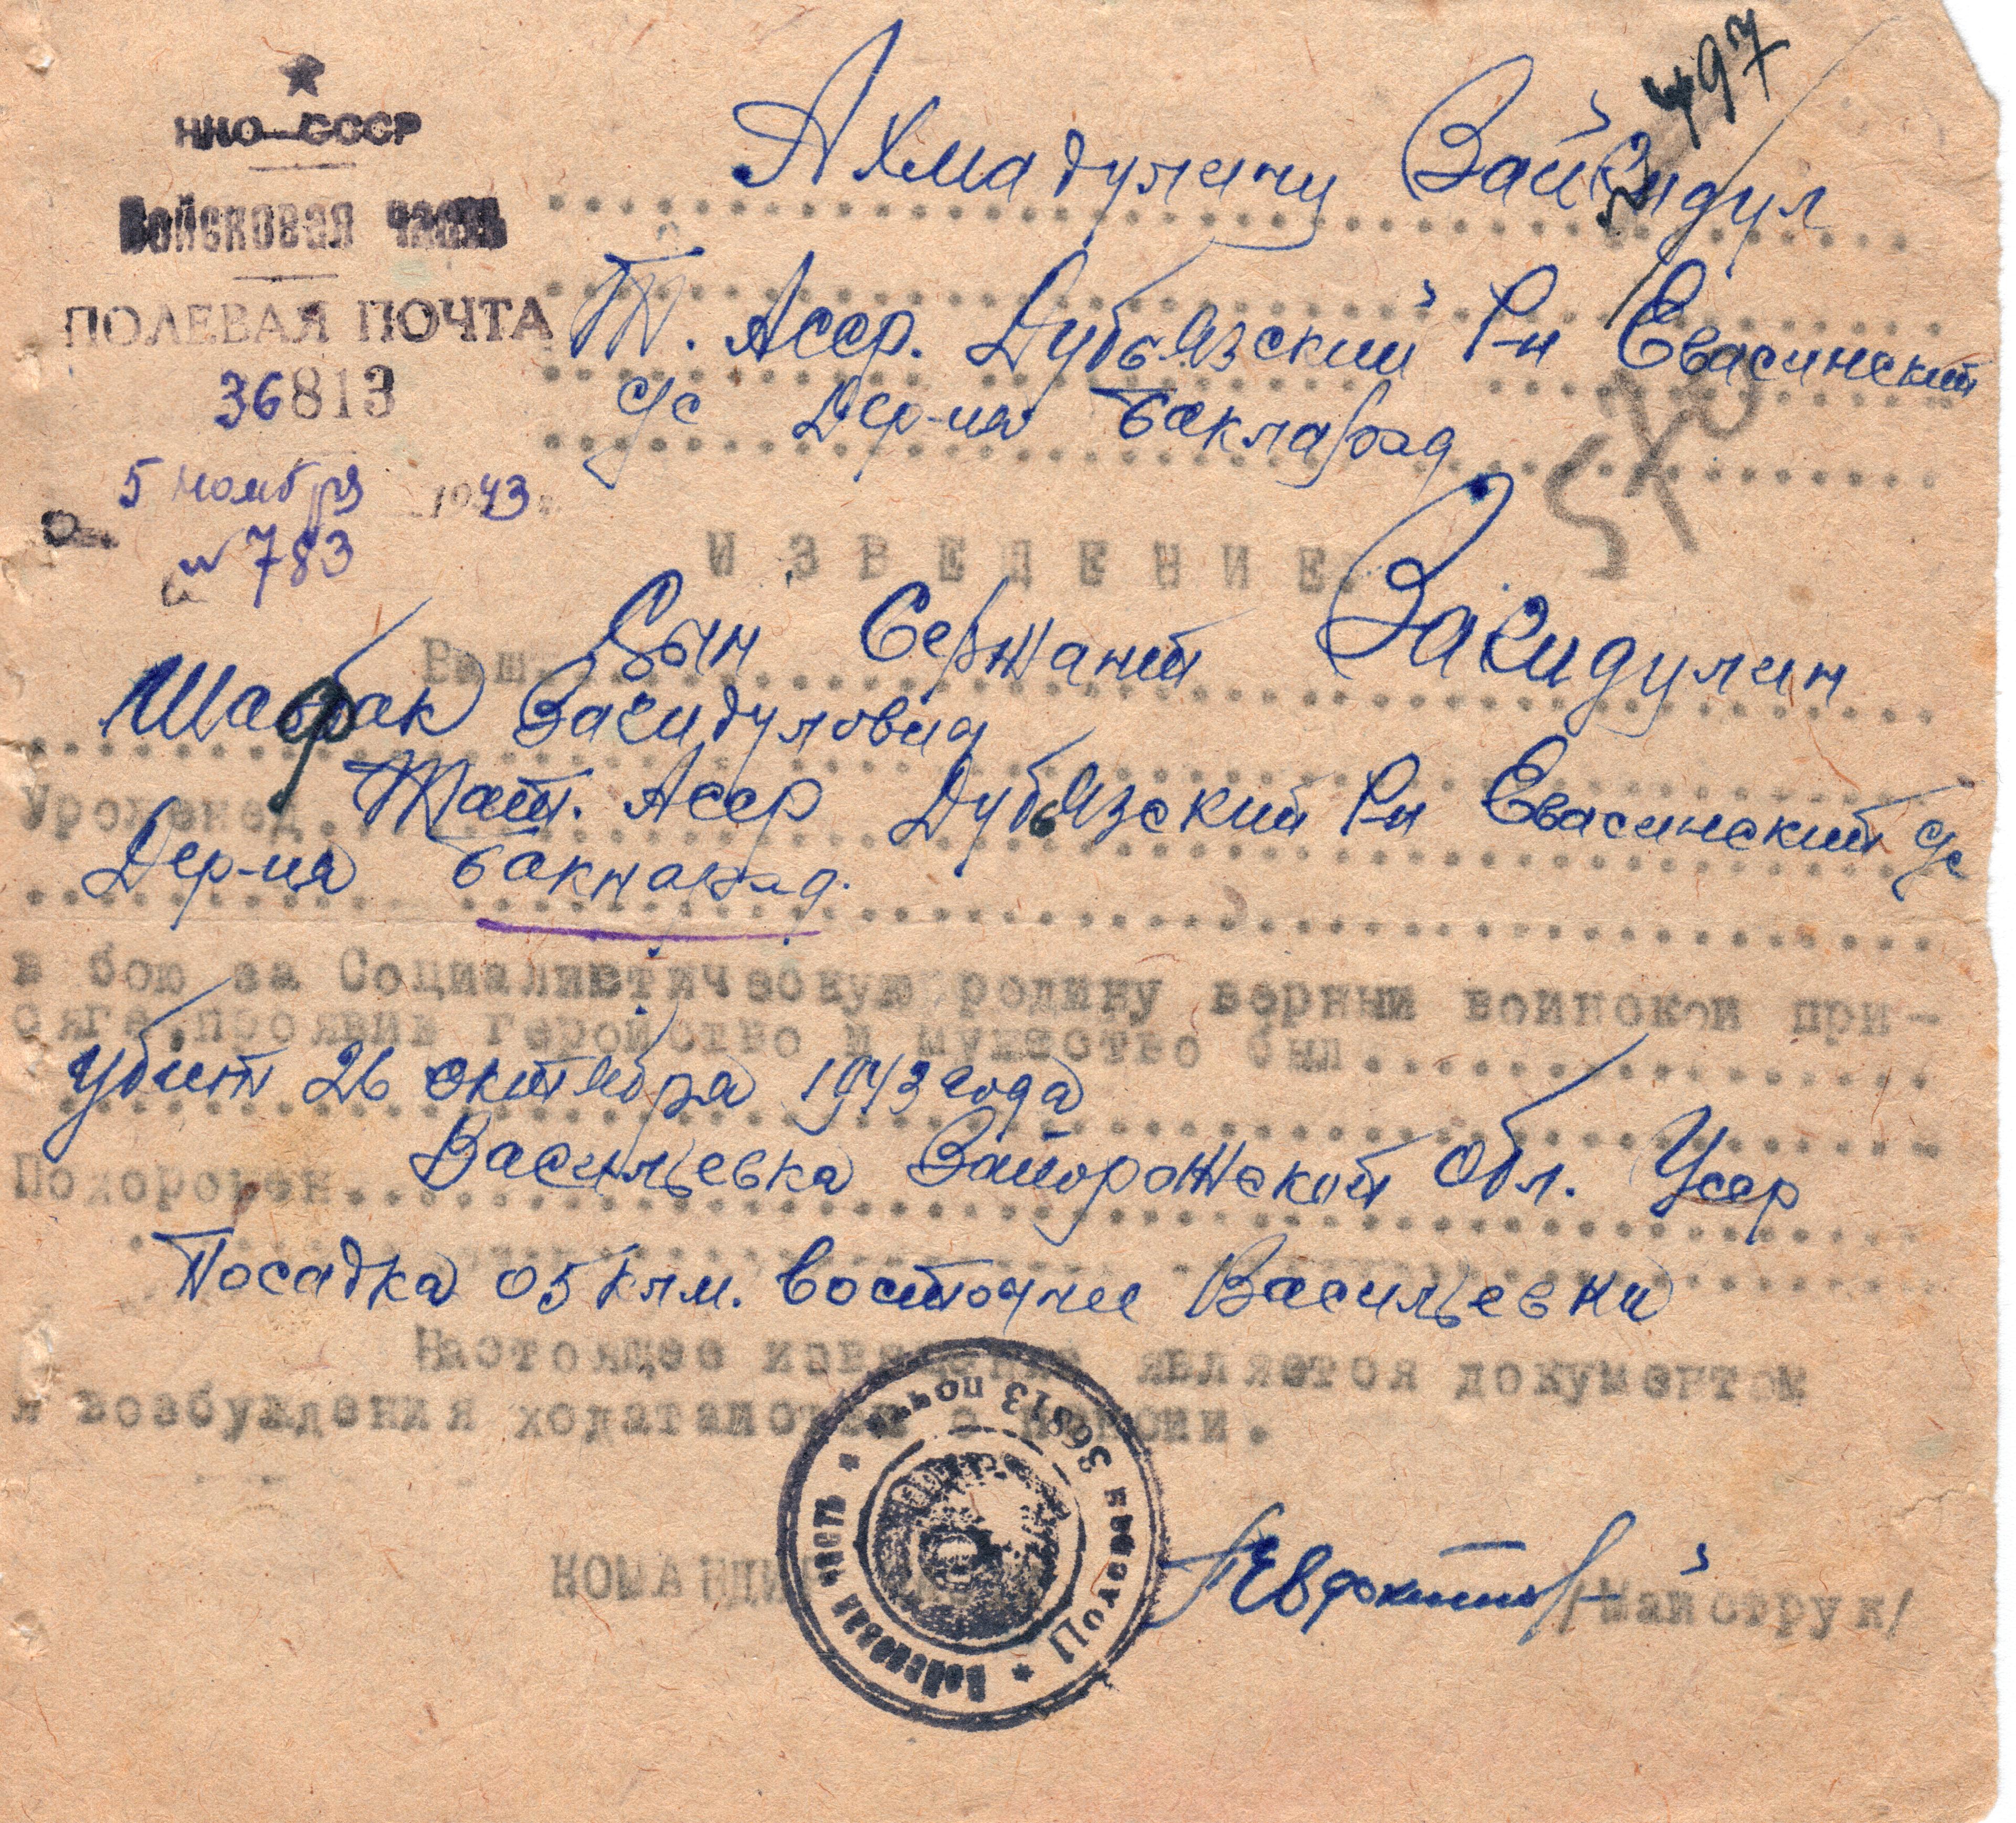 497
НКО-СССР
Войсковая часть
ПОЛЕВАЯ ПОЧТА
36813
5 ноября 1943 г.
№ 783
Ахмадулину
Т. Асср. Дубьязский Р-н Евасинский
с/с Дер-ня
ИЗВЕЩЕНИЕ
Ваш Сын Сержант Загидулин
Шафрак Загидулович
Уроженец Тат. Асср Дубьязский Р-н Евасинский с/с
Дер-ня
в бою за Социалистическую родину верный воинской при-
сяге, проявив геройство и мужество был
убит 26 октября 1943 года
Похоронен Васильевка Запорожской Обл. Усср
Посадка 05 клм. Восточнее Васильевки
Настоящее извещение является документом
я возбуждения ходатайства о пенсии.
КОМАНДИР ЧАСТИ Евдокимов /Майструк/
Войсковая часть * Полевая 36813 почта *